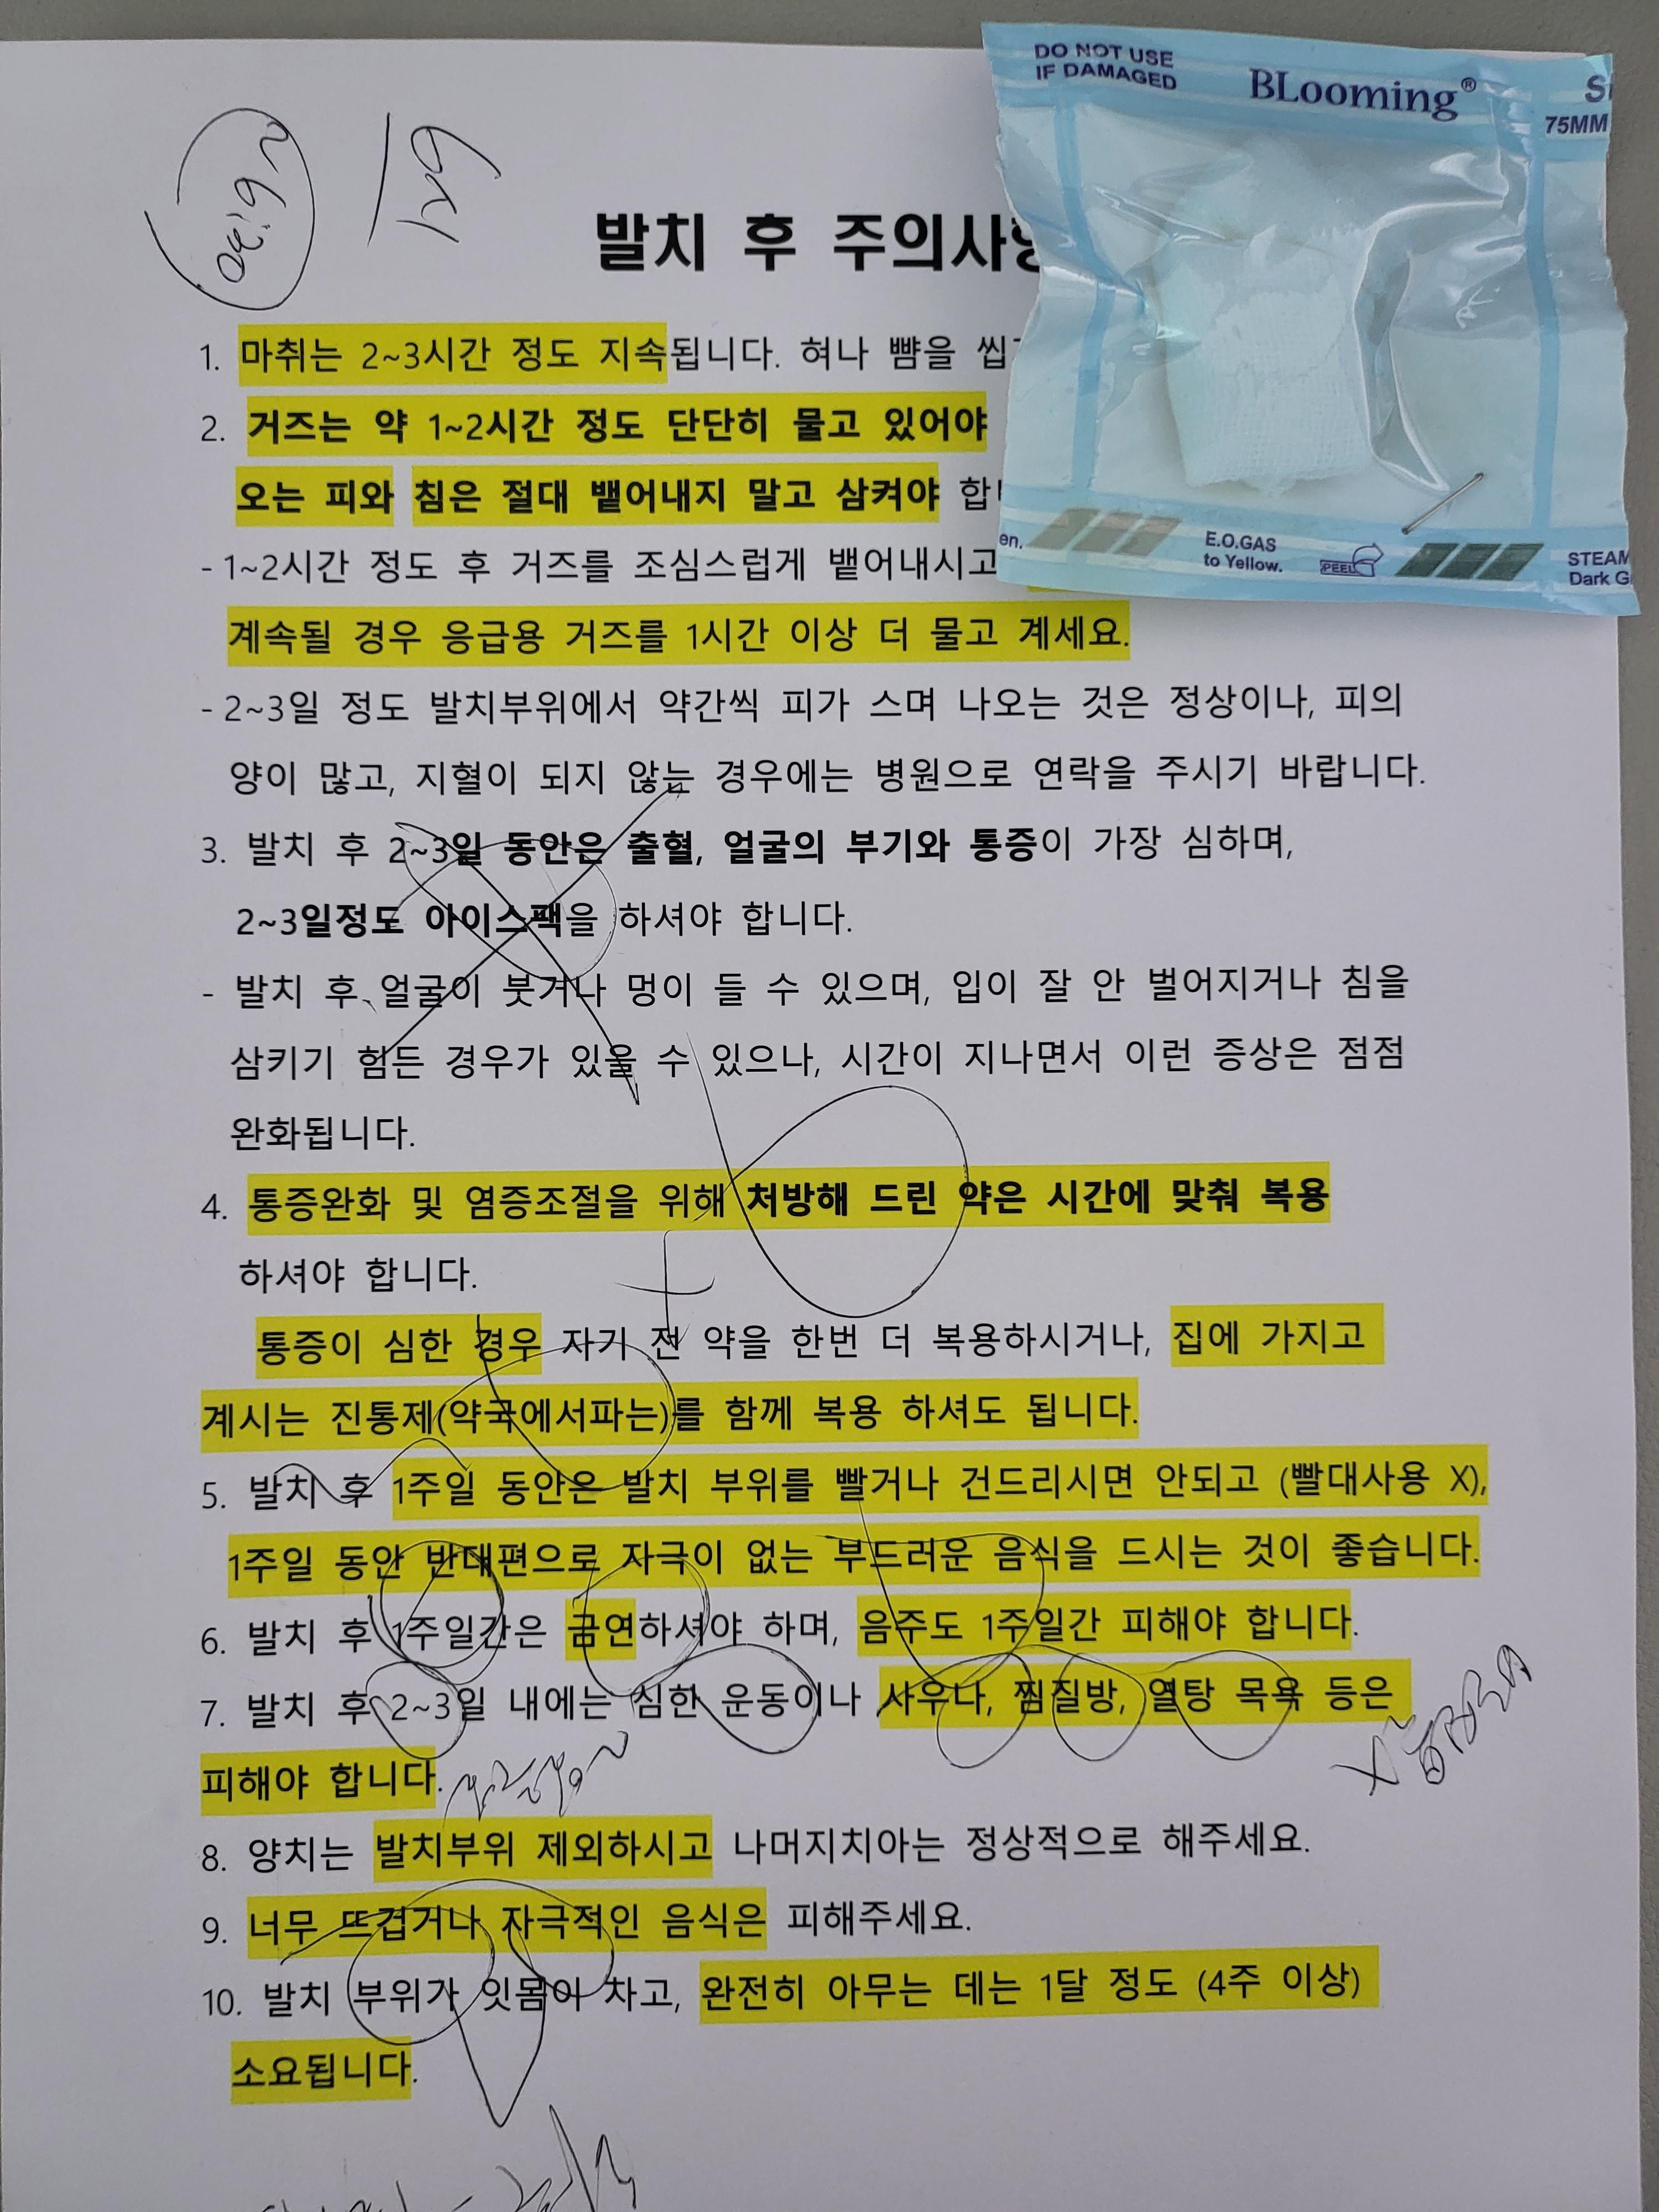 DO NOT USE
IF DAMAGED
BLooming®
75MM
~6:30
6시
발치 후 주의사
1. 마취는 2~3시간 정도 지속됩니다. 혀나 뺨을
2. 거즈는 약 1~2시간 정도 단단히 물고 있어야
오는 피와 침은 절대 뱉어내지 말고 삼켜야
en.
E.O.GAS
to Yellow.
PEEL
STEAM
Dark G
- 1~2시간 정도 후 거즈를 조심스럽게 뱉어내시고
계속될 경우 응급용 거즈를 1시간 이상 더 물고 계세요.
- 2~3일 정도 발치부위에서 약간씩 피가 스며 나오는 것은 정상이나, 피의
양이 많고, 지혈이 되지 않는 경우에는 병원으로 연락을 주시기 바랍니다.
3. 발치 후 2~3일 동안은 출혈, 얼굴의 부기와 통증이 가장 심하며,
2~3일정도 아이스팩을 하셔야 합니다.
- 발치 후 얼굴이 붓거나 멍이 들 수 있으며, 입이 잘 안 벌어지거나 침을
삼키기 힘든 경우가 있을 수 있으나, 시간이 지나면서 이런 증상은 점점
완화됩니다.
4. 통증완화 및 염증조절을 위해 처방해 드린 약은 시간에 맞춰 복용
하셔야 합니다.
통증이 심한 경우 자기 전 약을 한번 더 복용하시거나, 집에 가지고
계시는 진통제(약국에서파는)를 함께 복용 하셔도 됩니다.
5. 발치 후 1주일 동안은 발치 부위를 빨거나 건드리시면 안되고 (빨대사용 X),
1주일 동안 반대편으로 자극이 없는 부드러운 음식을 드시는 것이 좋습니다.
6. 발치 후 1주일간은 금연하셔야 하며, 음주도 1주일간 피해야 합니다.
7. 발치 후 2~3일 내에는 심한 운동이나 사우나, 찜질방, 열탕 목욕 등은
피해야 합니다.
8. 양치는 발치부위 제외하시고 나머지치아는 정상적으로 해주세요.
9. 너무 뜨겁거나 자극적인 음식은 피해주세요.
10. 발치 부위가 잇몸이 차고, 완전히 아무는 데는 1달 정도 (4주 이상)
소요됩니다.